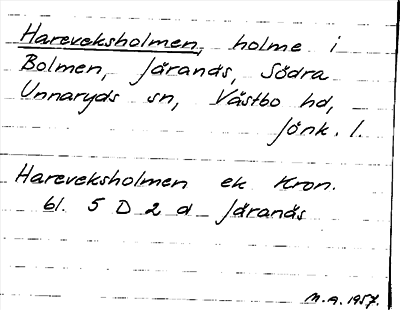 Hareveksholmen, holme i
Bolmen, Järanäs, Södra
Unnaryds sn, Västbo hd,
Jönk. l.
Hareveksholmen ek Kron.
bl. 5 D 2 d Järanäs
M.A. 1957.